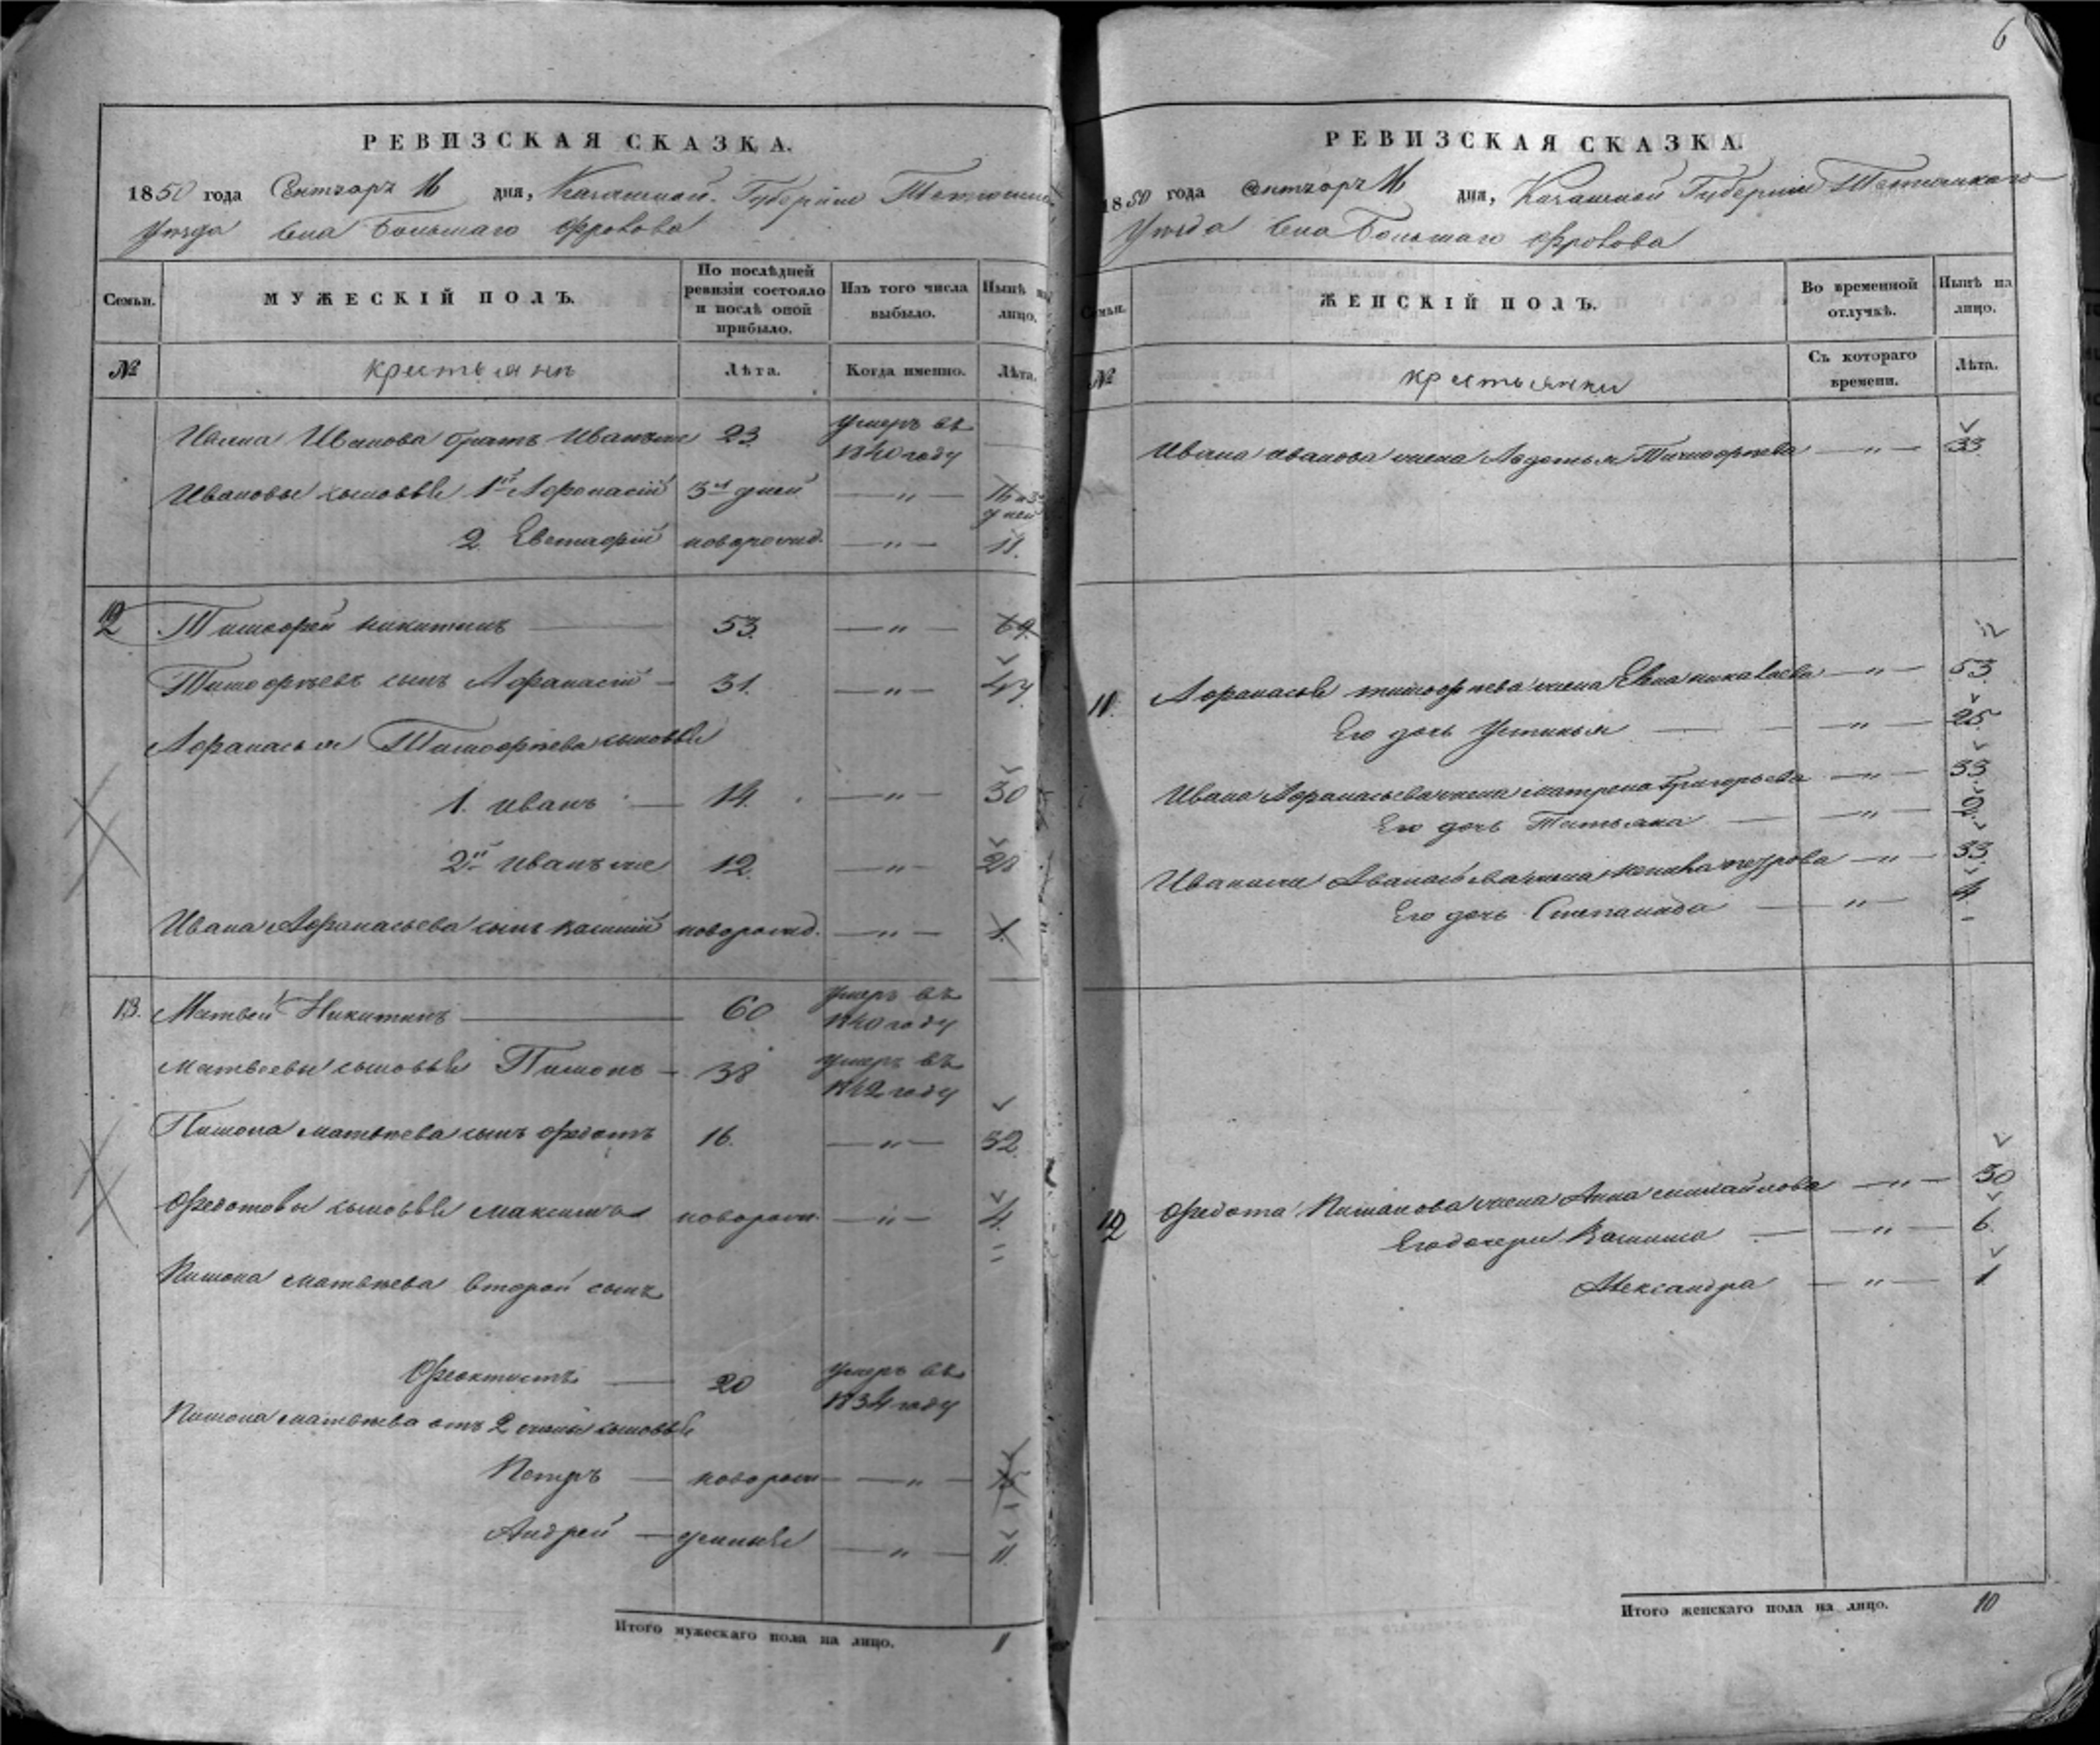 6
РЕВИЗСКАЯ СКАЗКА.
1850 года Сентябрь 16 дня, Казанской Губернии
Уезда Села Большаго Фролова
Семьи. МУЖЕСКІЙ ПОЛЪ. По послѣдней ревизіи состояло и послѣ оной прибыло. Изъ того числа выбыло. Нынѣ на лицо.
№ крестьянъ Лѣта. Когда именно. Лѣта.
Ивана Иванова братъ Иванъ же 23. умеръ въ 1840 году
Ивановы сыновья 1й Афонасій 3 дней — " — 16 и 3 дней
2. Евстафій новорожд. — " — 11.
12 Тимофей Никитинъ 53. — " — 69.
Тимофѣевъ сынъ Афанасій 31. — " — 47.
Афанасья Тимофѣева сыновья
1. Иванъ 14. — " — 30
2й Иванъ же 12. — " — 28
Ивана Афанасьева сынъ новорожд. — " — 1.
13. Матвей Никитинъ 60 умеръ въ 1840 году
Матвеевы сыновья Пимонъ 38 умеръ въ 1842 году
Пимона Матвѣева сынъ Федотъ 16. — " — 32.
Федотовы сыновья Максимъ новорож. — " — 4.
Пимона Матвѣева второй сынъ
Феоктистъ 20 умеръ въ 1834 году
Пимона Матвѣева отъ 2 жены сыновья
Петръ новорож — " — 15
Андрей — " — 11.
Итого мужескаго пола на лицо. 11
РЕВИЗСКАЯ СКАЗКА.
1850 года Сентябрь 16 дня, Казанской Губернии Тетюшскаго
Уезда Села Большаго Фролова
Семьи. ЖЕНСКІЙ ПОЛЪ. Во временной отлучкѣ. Нынѣ на лицо.
№ крестьянки Съ котораго времени. Лѣта.
Ивана Иванова жена Авдотья Тимофѣева — " — 33.
11. Афанасья Тимофѣева жена Евна Николаева — " — 53.
Его дочь Устинья — " — 25.
Ивана Афанасьева жена Матрена Григорьева — " — 33
Его дочь Татьяна — " —
Ивана же жена Петрова — " — 33.
Его дочь Степанида — " — 4.
12 Федота Пиманова жена Анна Михайлова — " — 30
Его дочери — " — 6.
Александра — " — 1
Итого женскаго пола на лицо. 10